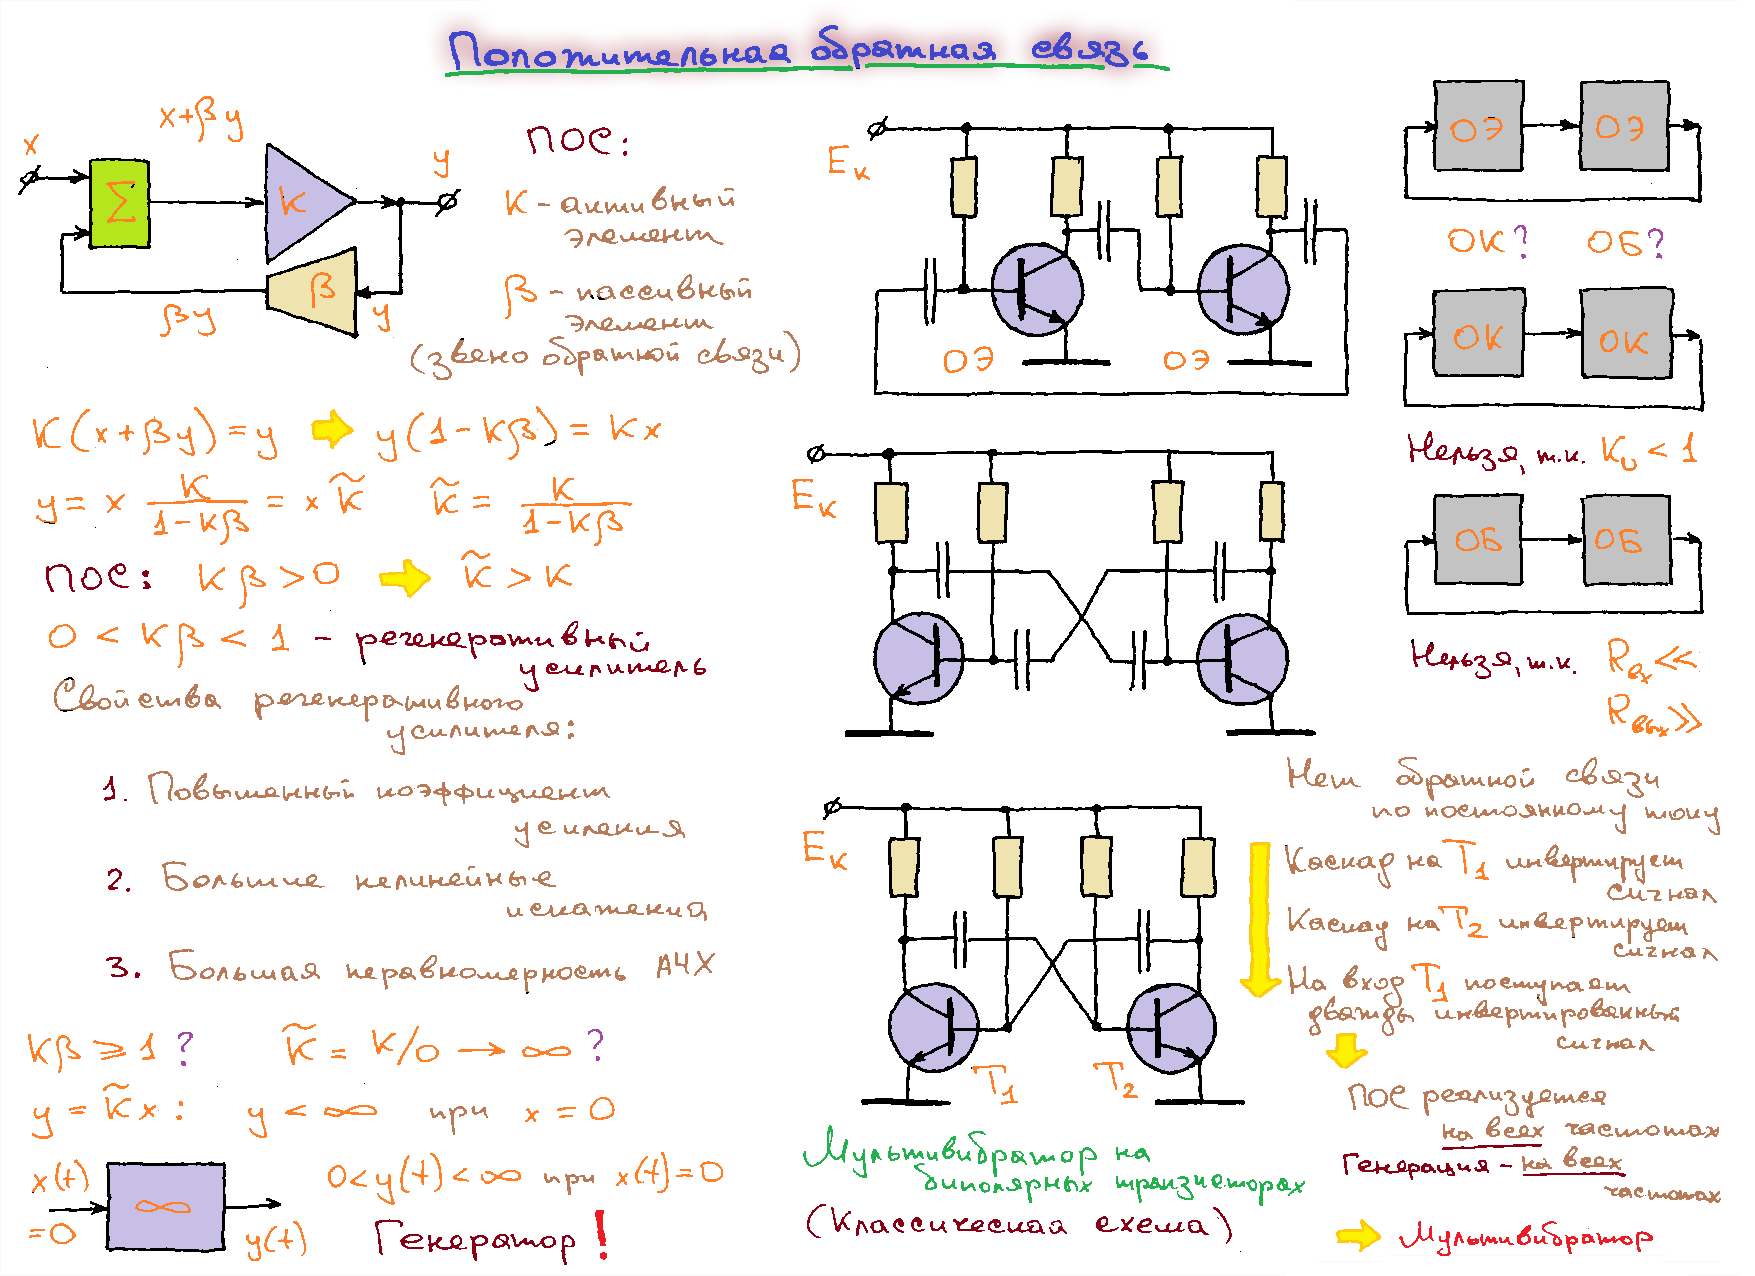 Положительная обратная связь
x
x+βy
Σ
K
y
β
βy
y
ПОС:
K - активный
элемент
β - пассивный
элемент
(звено обратной связи)
K(x+βy)=y ➡ y(1-Kβ)=Kx
y = x K/(1-Kβ) = x K̃    K̃ = K/(1-Kβ)
ПОС: Kβ>0 ➡ K̃>K
0 < Kβ < 1 - регенеративный
усилитель
Свойства регенеративного
усилителя:
1. Повышенный коэффициент
усиления
2. Большие нелинейные
искажения
3. Большая неравномерность АЧХ
Kβ ⩾ 1 ?    K̃ = K/0 → ∞ ?
y = K̃x :    y < ∞ при x = 0
x(t)
=0
∞
y(t)
0<y(t)<∞ при x(t)=0
Генератор !
Eк
ОЭ
ОЭ
Eк
Eк
T1
T2
Мультивибратор на
биполярных транзисторах
(Классическая схема)
ОЭ
ОЭ
ОК?
ОБ?
ОК
ОК
Нельзя, т.к. KU < 1
ОБ
ОБ
Нельзя, т.к. Rвх ≪
Rвых ≫
Нет обратной связи
по постоянному току
Каскад на T1 инвертирует
сигнал
Каскад на T2 инвертирует
сигнал
На вход T1 поступает
дважды инвертированный
сигнал
ПОС реализуется
на всех частотах
Генерация - на всех
частотах
➡ Мультивибратор